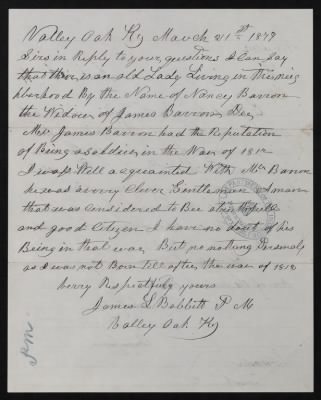 Valley Oak Ky March 21st 1879
Sirs in Reply to your questions I Can Say
that ther is an old Lady Living in this neig
hborhood By the Name of Nancy Barron
the Widow of James Barron Dec,
Mr James Barron had the Reputation
of Being a Soldier in the War of 1812
I was Well acquainted With Mr Barron
he was a verry Clever Gentleman a man
that was Considered to Bee a truthfull
and good Citizen I have no dout of his
Being in that war But no nothing Personaly
as I was not Born till after the war of 1812
verry Respectfuly yours
James L Bobbitt P M
Valley Oak Ky
P.M.